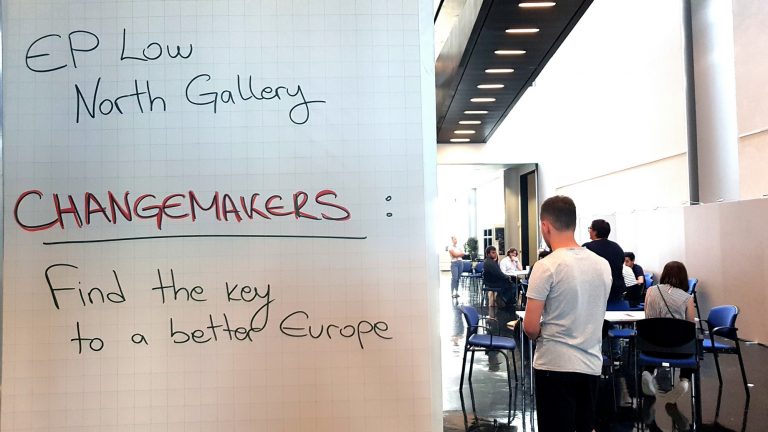 EP Low
North Gallery
CHANGEMAKERS :
Find the key
to a better Europe